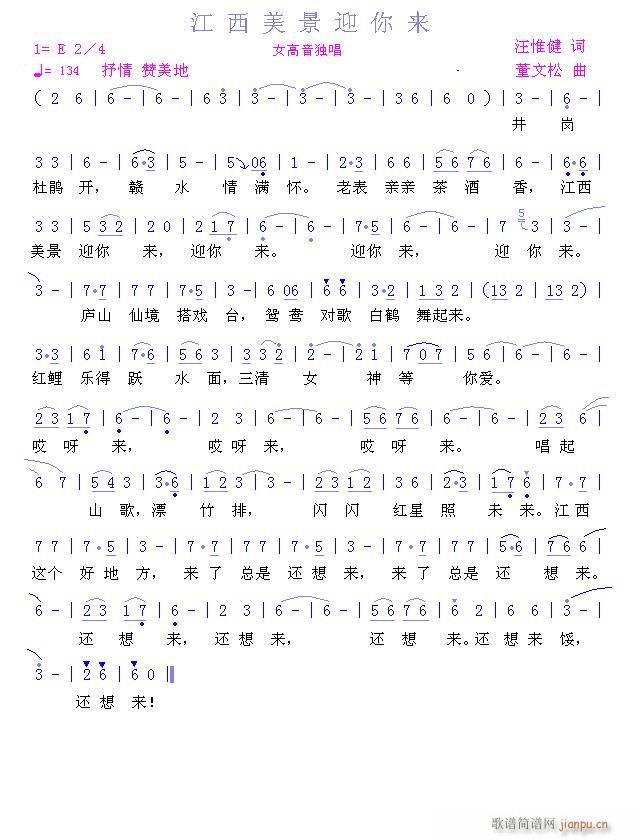 江西美景迎你来
1= E 2／4
女高音独唱
汪惟健 词
♩= 134 抒情 赞美地
董文松 曲
( 2 6 | 6 - | 6 - | 6 3 | 3 - | 3 - | 3 - | 3 - | 6 6 | 6 0 ) | 3 - | 6 - |
井 岗
3 3 | 6 - | 6·3 | 5 - | 5 06 | 1 - | 2·3 | 6 6 | 5 6 7 6 | 3 - | 6·6 |
杜鹃 开, 赣 水 情 满 怀。老表 亲亲 茶 酒 香, 江西
3 3 | 5 3 2 | 2 0 | 2·1 7 | 6 - | 6 - | 7·5 | 6 - | 6 - | 7 - | 3 | 3 - |
美景 迎你 来, 迎你 来。 迎你 来, 迎 你 来。
3 - | 7·7 | 7 7 | 7·5 | 3 - | 6 06 | 6 6 | 3·2 | 1 3 2 | (13 2 | 13 2) |
庐山 仙境 搭戏 台, 鸳 鸯 对歌 白鹤 舞起来。
3·3 | 6 i | 7·6 | 5 5 | 5·4 | 3 3 2 | 2 - | 2 1 | 7 0 7 | 5 6 | 5 6 |
红鲤 乐得 跃 水 面, 三清 女 神 等 你爱。
2 3 1 7 | 6 - | 6 - | 2 3 | 6 - | 6 - | 5 6 7 6 | 6 - | 6 - | 2 3 6 |
哎 呀 来, 哎 呀 来, 哎 呀 来。 唱 起
6 7 | 5 4 3 | 3·5 | 7 6 | 3 - | 3 3 | 3 5 | 2·3 | 1 7 6 | 7·7 |
山 歌, 漂 竹 排, 闪 闪 红星 照 未 来。江西
7 7 | 7·5 | 3 - | 7 7 | 7 7 | 3 3 | 3 - | 7 7 | 7 2 | 5·6 | 7 6 6 |
这个 好地 方, 来 了 总是 还想 来, 来了 总是 还 想来。
6 - | 2 3 1 7 | 6 - | 2 3 | 6 - | 6 - | 5 6 7 6 | 6 2 | 6 6 | 3 - |
还 想 来, 还 想 来, 还 想 来。还 想 来 馁,
3 - | 2 6 | 6 0 ‖
还 想 来!
歌谱简谱网
jianpu.cn